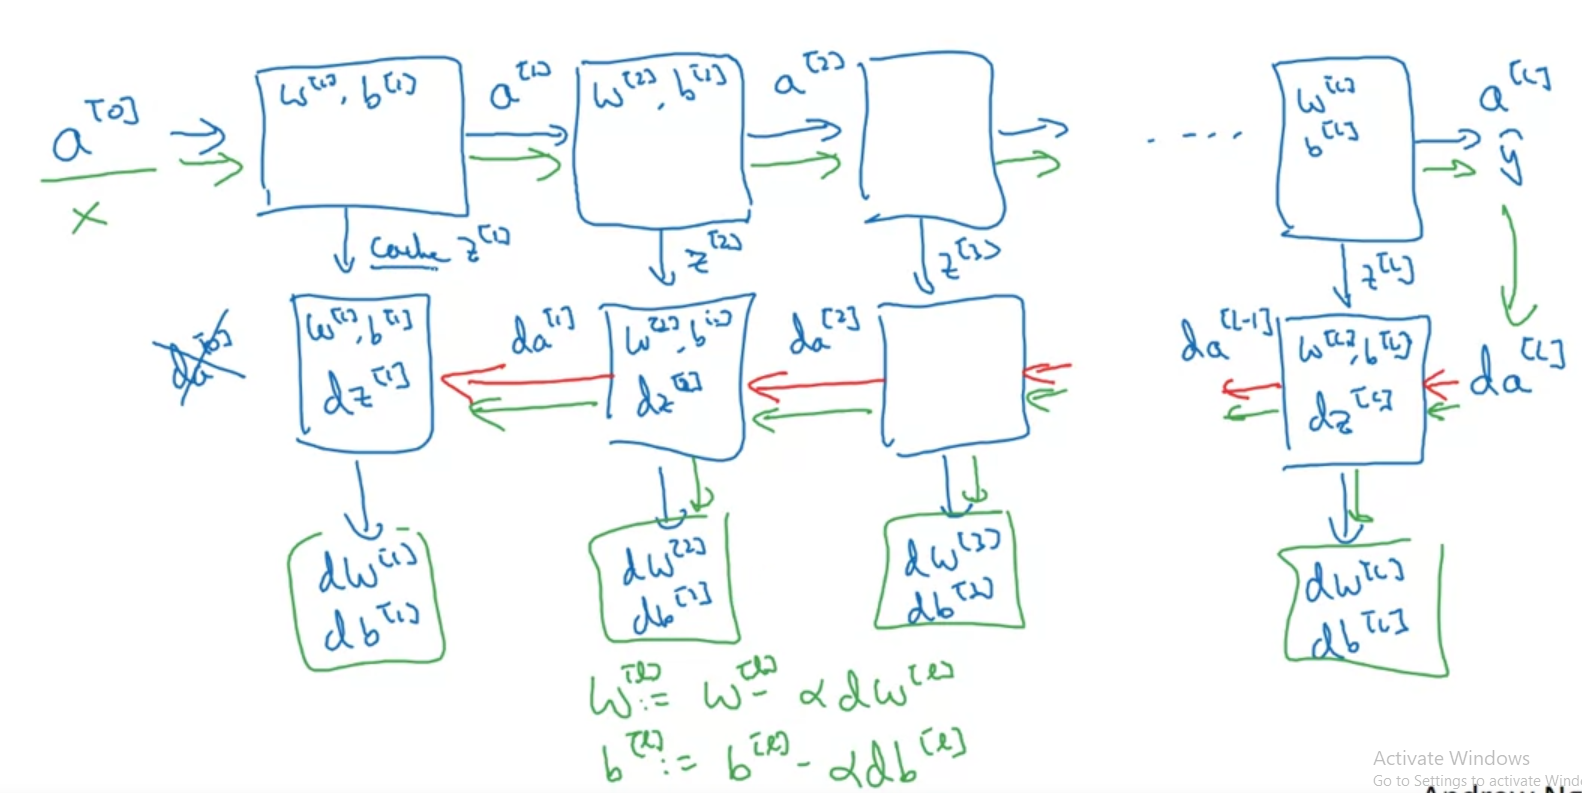 a^[0]
x
w^[1], b^[1]
a^[1]
w^[2], b^[2]
a^[2]
w^[L]
b^[L]
a^[L]
ŷ
cache z^[1]
z^[2]
z^[3]
z^[L]
da^[0]
w^[1], b^[1]
dz^[1]
da^[1]
w^[2], b^[2]
dz^[2]
da^[2]
da^[L-1]
w^[L], b^[L]
dz^[L]
da^[L]
dw^[1]
db^[1]
dw^[2]
db^[2]
dw^[3]
db^[3]
dw^[L]
db^[L]
w^[l] := w^[l] - αdw^[l]
b^[l] := b^[l] - αdb^[l]
Activate Windows
Go to Settings to activate Wind